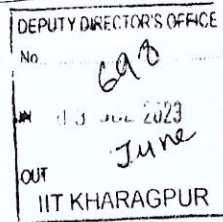 DEPUTY DIRECTOR'S OFFICE
No. 698
IN 13 JUL 2023
June
OUT
IIT KHARAGPUR